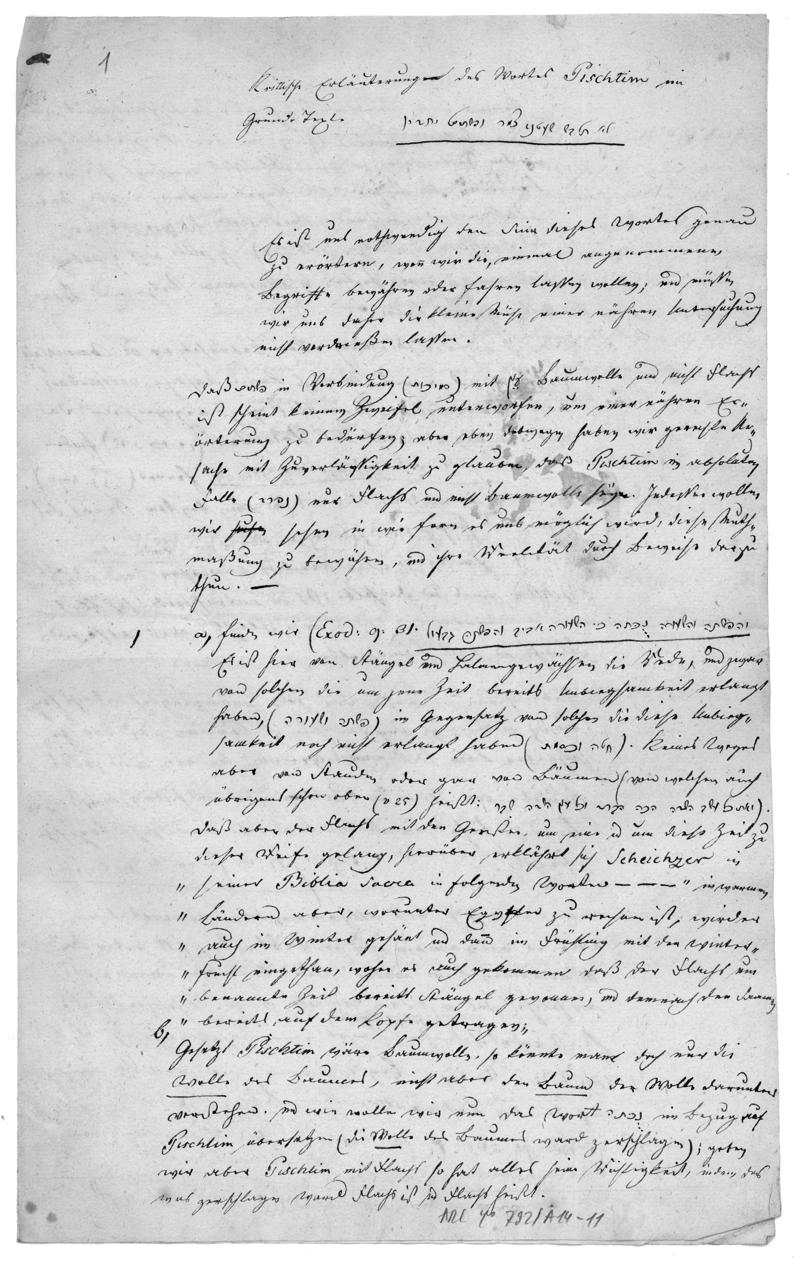 1
Krittische Erläuterungen des Wortes Pischtim im
Grund-Texte לא תלבש שעטנז צמר ופשתים יחדיו
Es ist uns nothwendig den Sinn dieses Wortes genau
zu erörtern, wenn wir die, einmal angenommenen
Begriffe bewähren oder fahren lassen wollen; und müssen
wir uns daher die kleine Mühe einer nähren Untersuchung
nicht verdrießen lassen.
Daß פשתים in Verbindung (סמיכות) mit עץ Baumwolle und nicht Flachs
ist scheint keinem Zweifel unterworfen, um einer nähren Er-
örterung zu bedürfen; aber eben deswegen haben wir gerechte Ur-
sache mit Zuverläßigkeit zu glauben, das Pischtim im absoluten
Falle (נפרד) nur Flachs und nicht Baumwolle seÿn. Indessen wollen
wir sehen in wie fern es uns möglich wird, diese Muth-
maßung zu bewähren, und ihre Realität durch Beweise darzu
thun. —
1 a, finden wir (Exod: 9. 31. והפשתה והשעורה נכתה כי השעורה אביב והפשתה גבעול)
Es ist hier von Stängel und Halmengewächsen die Rede, und zwar
von solchen die um jene Zeit bereits Unbiegsamkeit erlangt
haben, (פשתה ושעורה) im Gegensatz von solchen die diese Unbieg-
samkeit noch nicht erlangt haben (חטה וכסמת). Keines Weges
aber von Stauden oder gar von Bäumen (von welchen auch
übrigens schon oben (v 25) heist: ואת כל עשב השדה הכה הברד ואת כל עץ השדה שבר).
Daß aber der Flachs mit den Gersten um eine u um diese Zeit zu
dieser Reife gelang, hierüber erklährt sich Scheichzer in
„ seiner Biblia Sacra in folgenden Worten — — — „ in warmen
„ Ländern aber, worunter Egypten zu rechnen ist, wird er
„ auch im Winter gesäet und dann im Frühling mit den Winter-
„ frucht eingethan, woher es auch gekommen daß der Flachs um
„ benannte Zeit bereits Stängel gewonnen, und demnach den Saamen
„ bereits auf dem Kopfe getragen„
b, Gesetzt Pischtim wäre Baumwolle, so könnte man doch nur die
Wolle des Baumes, nicht aber den Baum der Wolle darunter
verstehen. und wie wollen wir nun das Wort נכתה im Bezug auf
Pischtim übersetzen (die Wolle des Baumes ward zerschlagen); geben
wir aber Pischtim mit Flachs so hat alles seine Richtigkeit, indem das
was zerschlagen ward Flachs ist u Flachs heist.
792/A14-11